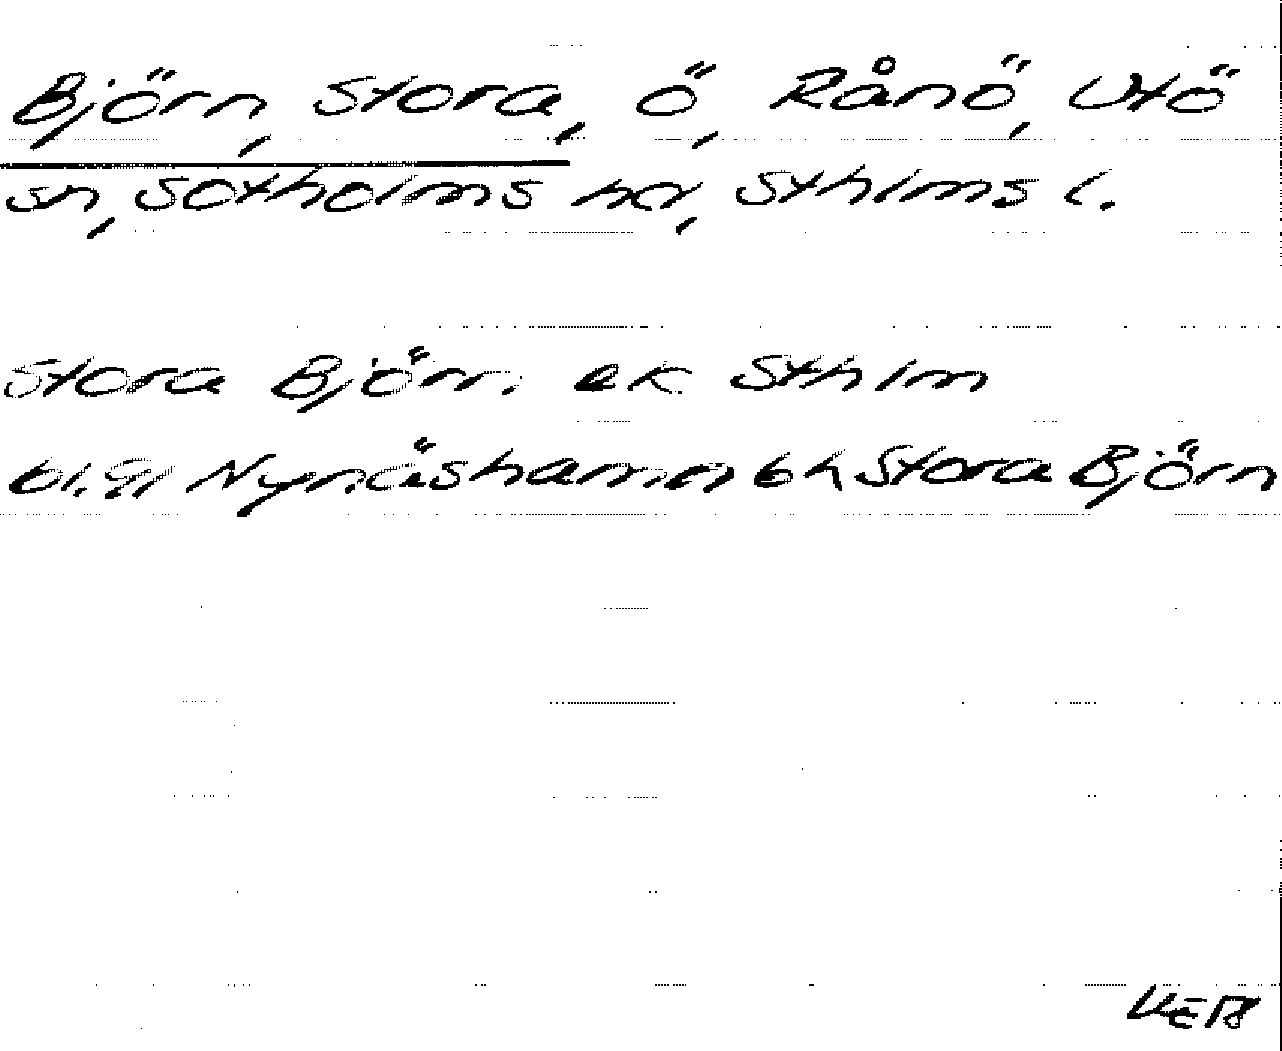 Björn, Stora, ö, Rånö, Utö
sn, Sotholms hd, Sthlms l.
Stora Björn. ek Sthlm
bl. 91 Nynäshamn bh Stora Björn